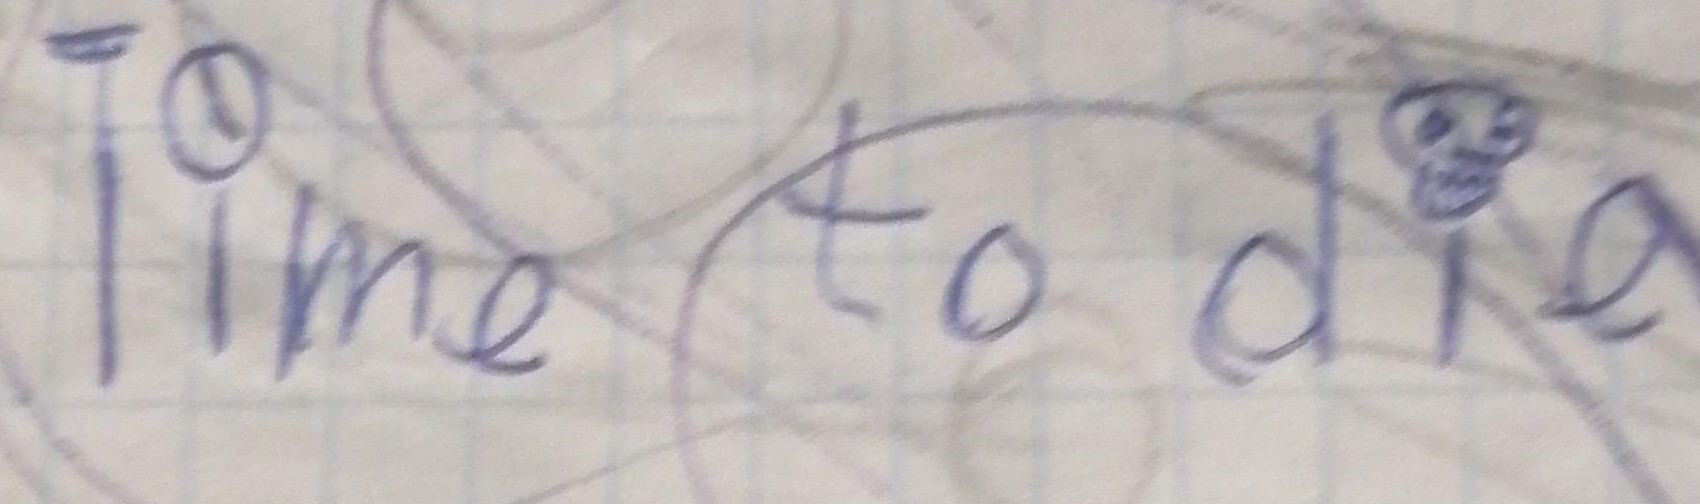 Time to die